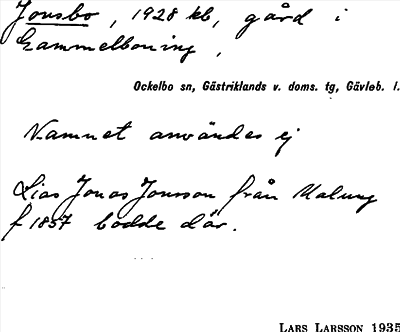 Jonsbo, 1928 kb, gård i
Gammelboning,
Ockelbo sn, Gästriklands v. doms. tg, Gävleb. l.
Namnet användes ej
Lias Jonas Jonsson från Malung
f 1857 bodde där.
LARS LARSSON 1935